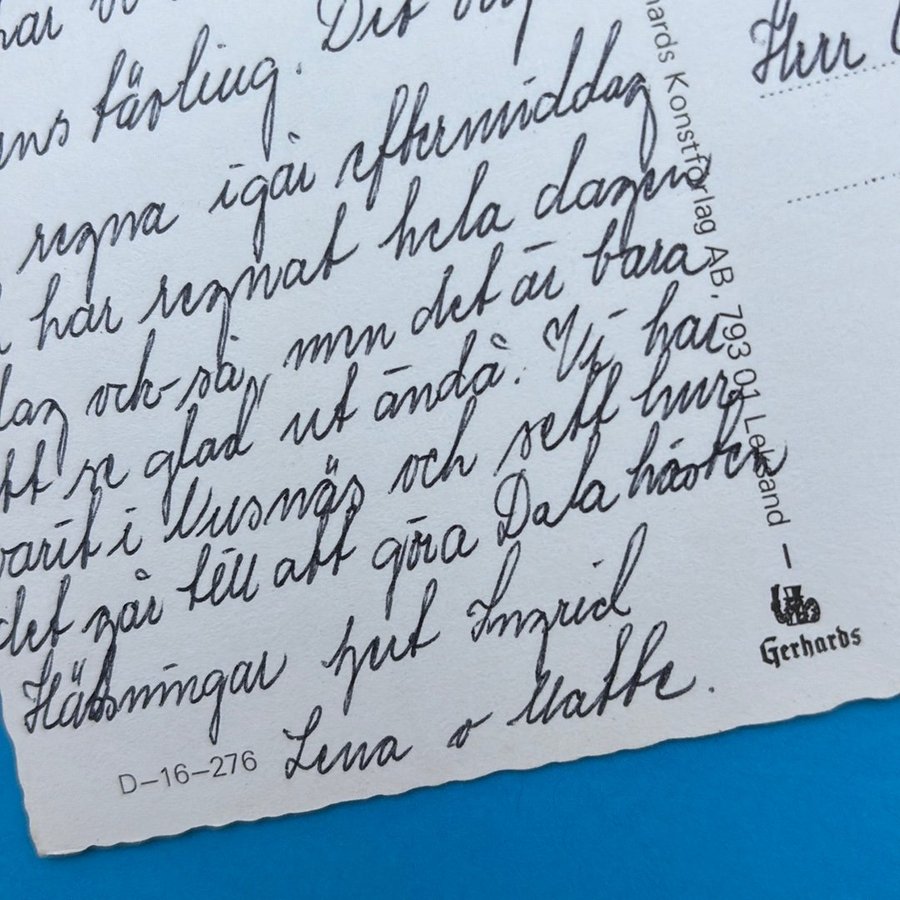 har vi
ens tävling. Det
regna igår eftermiddag
har regnat hela dagen
dag och-så, men det är bara
att se glad ut ändå. Vi har
varit i Nusnäs och sett hur
det går till att göra Dalahästen
Hälsningar Ingrid
Lena o Matte.
D-16-276
Herr
hards Konstförlag AB, 793 01 Leksand –
Gerhards